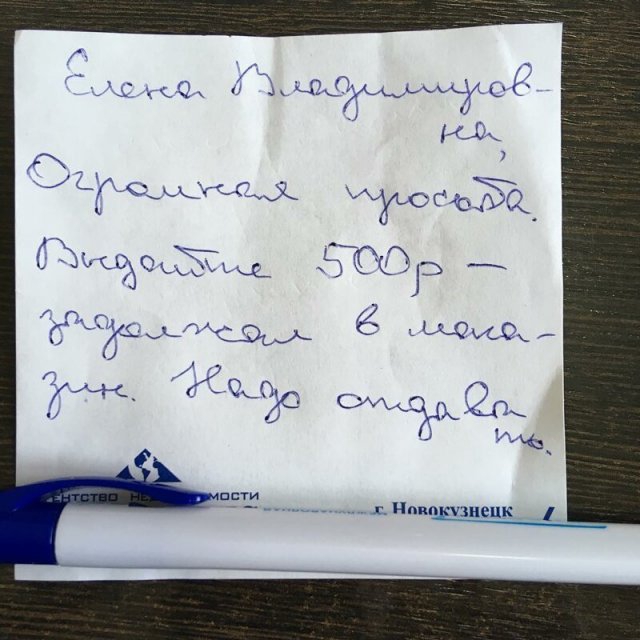 Елена Владимиров-
на,
Огромная просьба.
Выдайте 500р —
задолжал в мага-
зин. Надо отдава
ть.
ЕНТСТВО НЕ ИМОСТИ
г. Новокузнецк